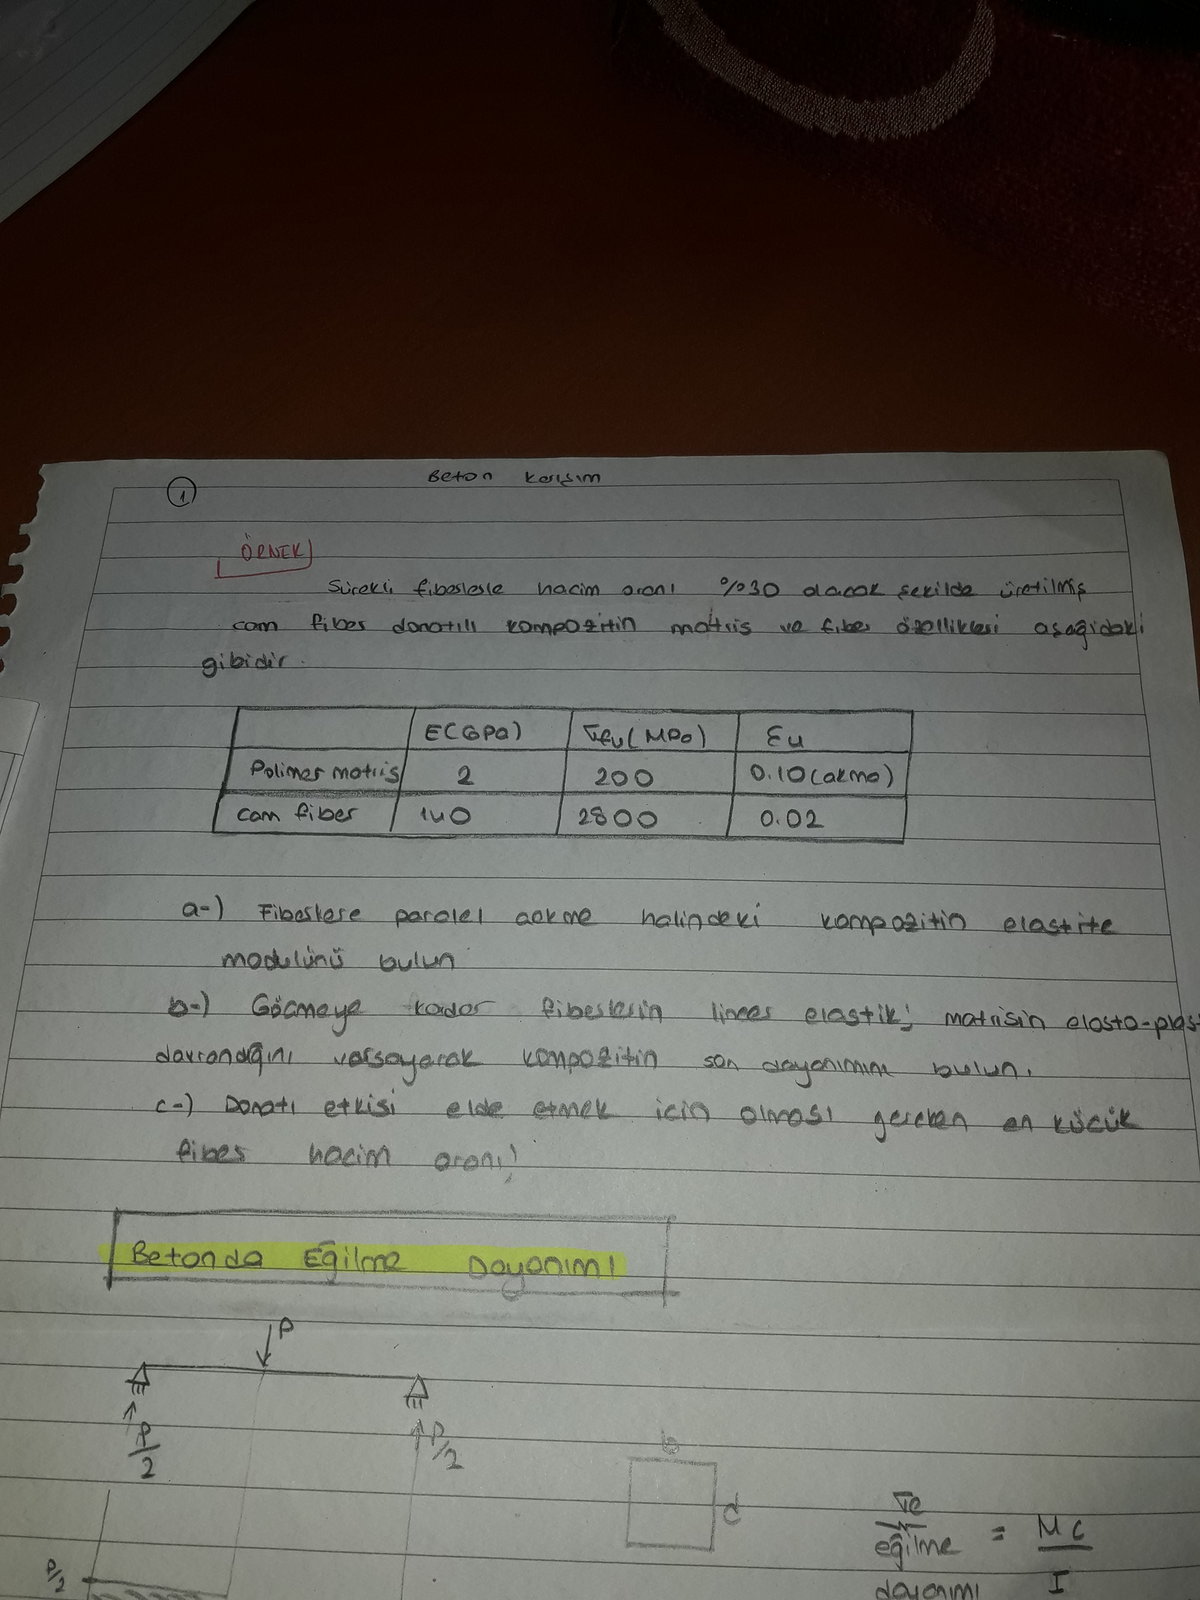 Beton karışım
1
ÖRNEK
Sürekli fiberlerle hacim oranı %30 olacak şekilde üretilmiş
cam fiber donatılı kompozitin matris ve fiber özellikleri aşağıdaki
gibidir.
E(GPa) σfu(MPa) εu
Polimer matris 2 200 0.10(akma)
cam fiber 140 2800 0.02
a-) Fiberlere paralel çekme halindeki kompozitin elastite
modülünü bulun
b-) Göçmeye kadar fiberlerin lineer elastik; matrisin elasto-plas
davrandığını varsayarak kompozitin son dayanımını bulun.
c-) Donatı etkisi elde etmek için olması gereken en küçük
fiber hacim oranı?
Betonda Eğilme Dayanımı
P
P/2 P/2
b
d
σe = Mc/I
eğilme
dayanımı
P/2